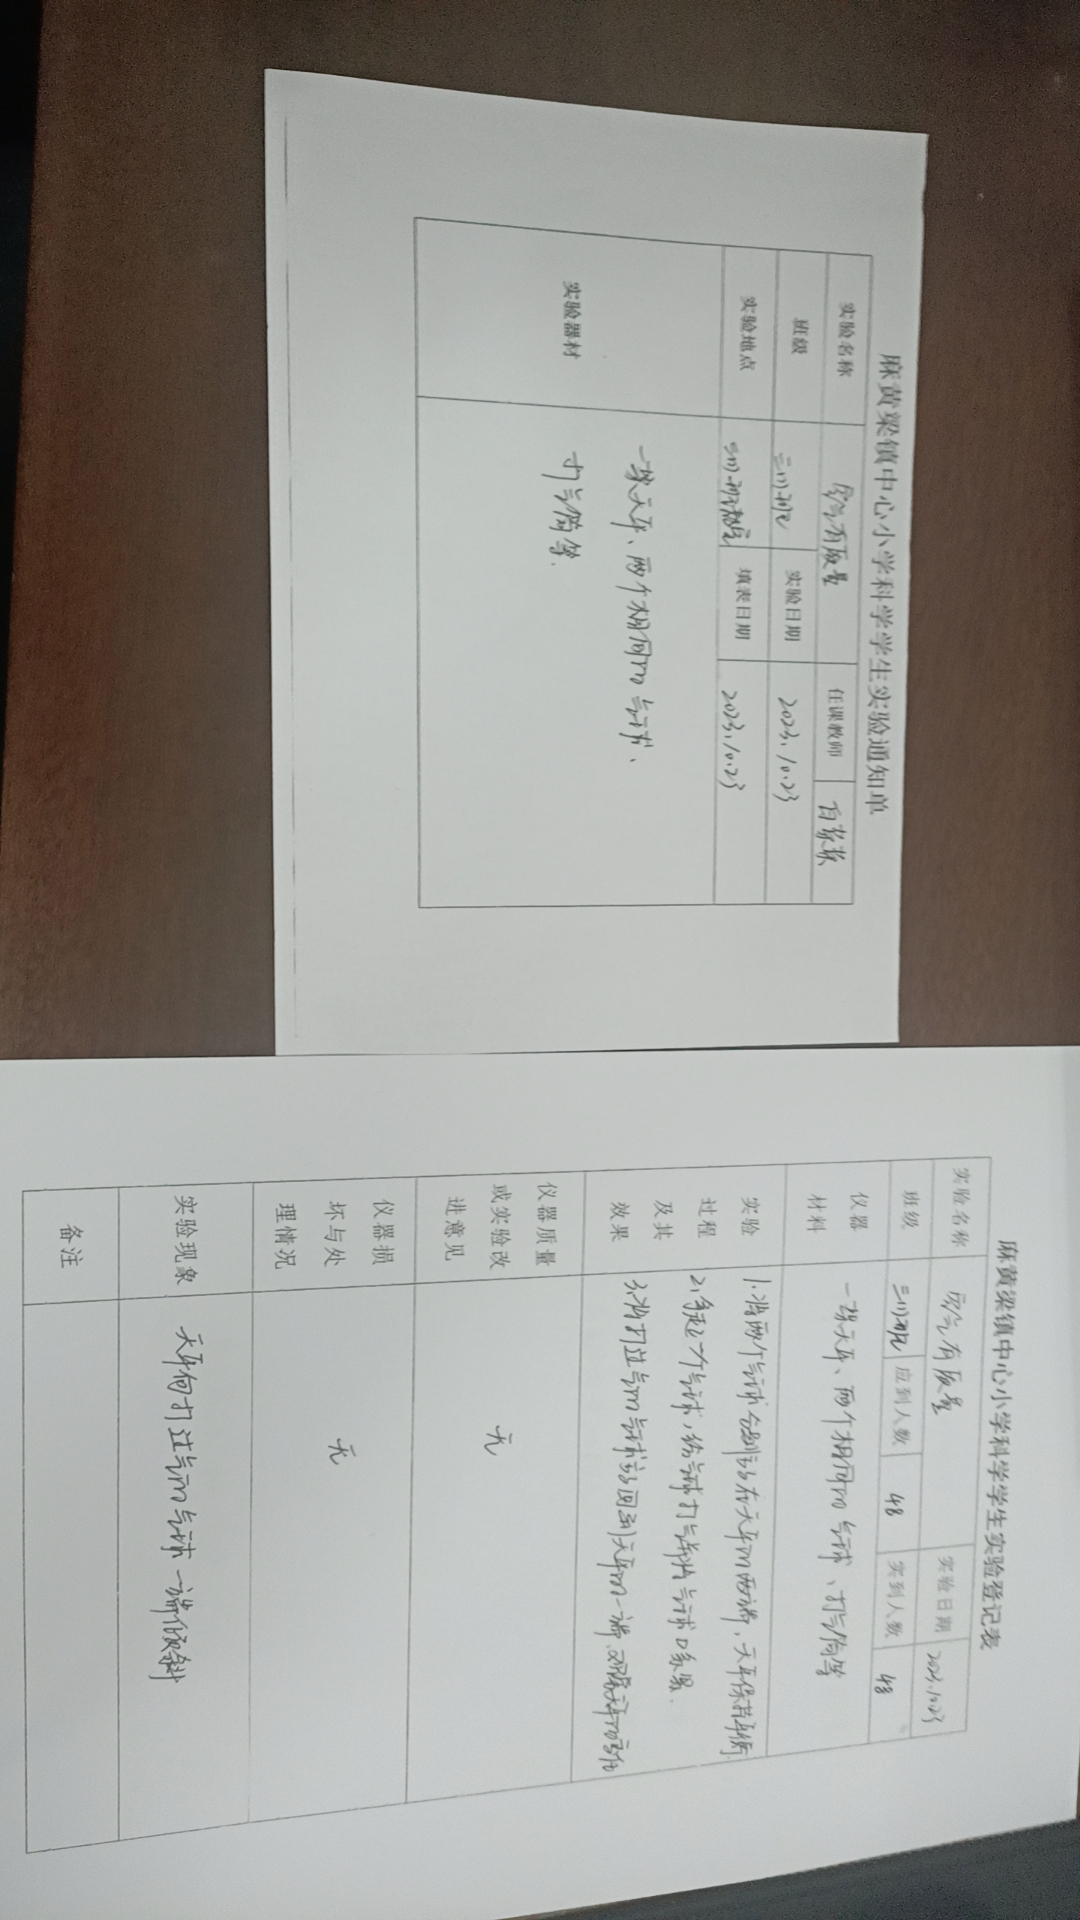 麻黄梁镇中心小学科学学生实验通知单
实验名称 空气有质量 任课教师
班级 三(1)班 实验日期 2023.10.23
实验地点 三(1)班教室 填表日期 2023.10.23
实验器材 一架天平、两个相同的气球、
打气筒等.
麻黄梁镇中心小学科学学生实验登记表
实验名称 空气有质量 实验日期 2023.10.23
班级 三(1)班 应到人数 48 实到人数 48
仪器
材料
一架天平、两个相同的气球、打气筒等
实验
过程
及其
效果
1.将两个气球分别放在天平的两端,天平保持平衡
2.拿起一个气球,给气球打气并将气球口系紧.
3.将打过气的气球放回到天平的一端,观察天平的变化
仪器质量
或实验改
进意见
无
仪器损
坏与处
理情况
无
实验现象 天平向打过气的气球一端倾斜
备注